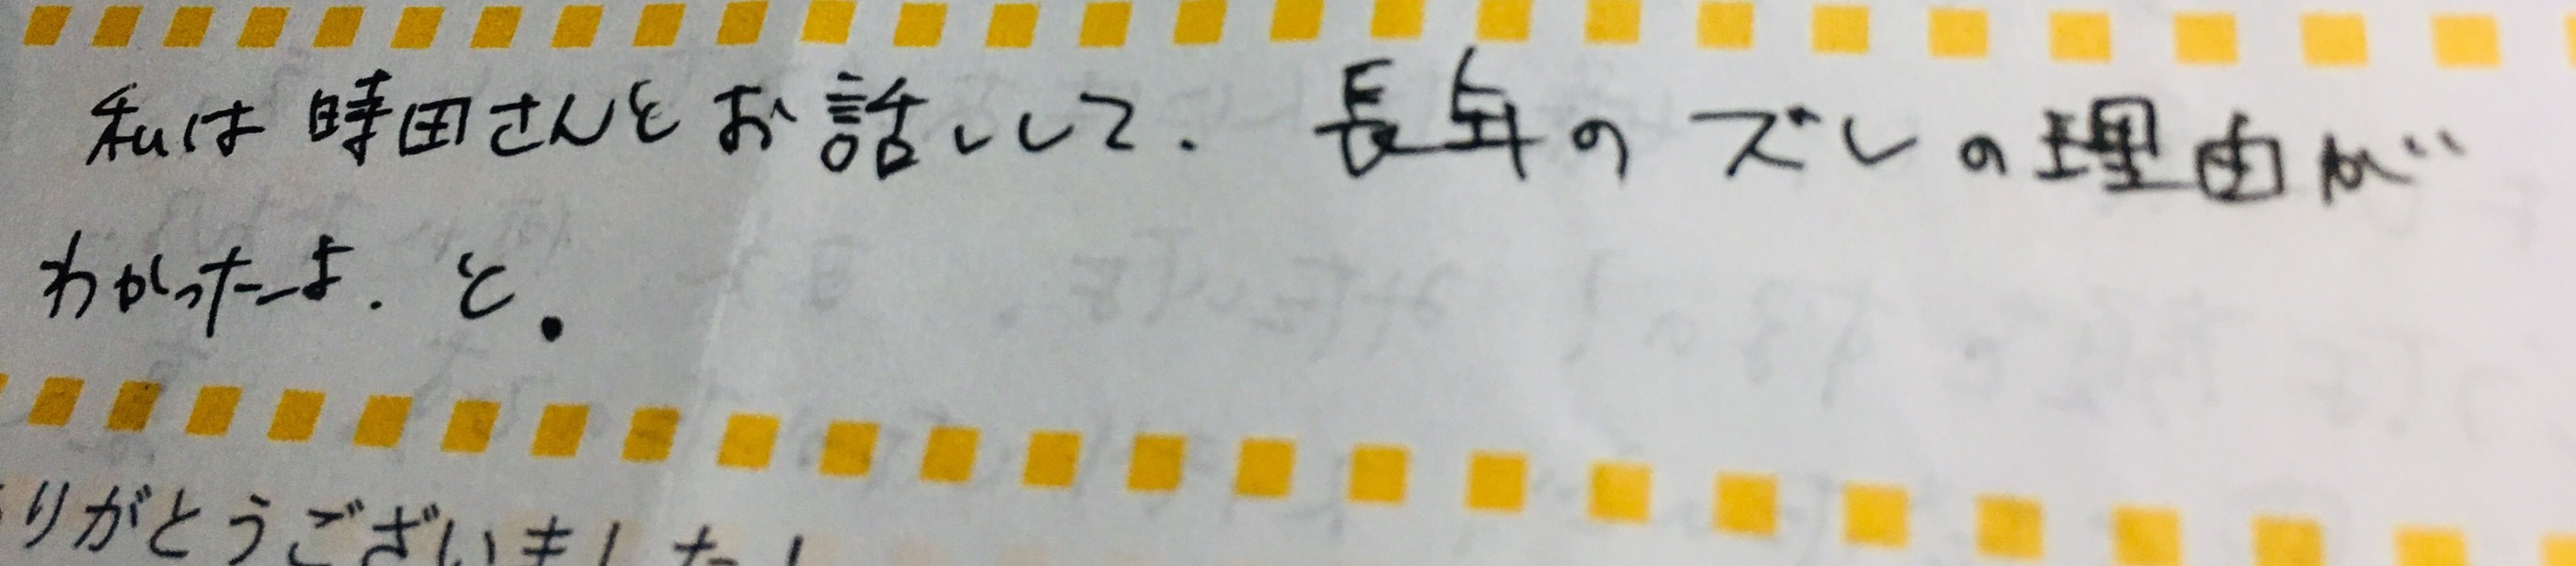 私は時田さんとお話しして、長年のズレの理由が
わかったよ、と。
りがとうございました!